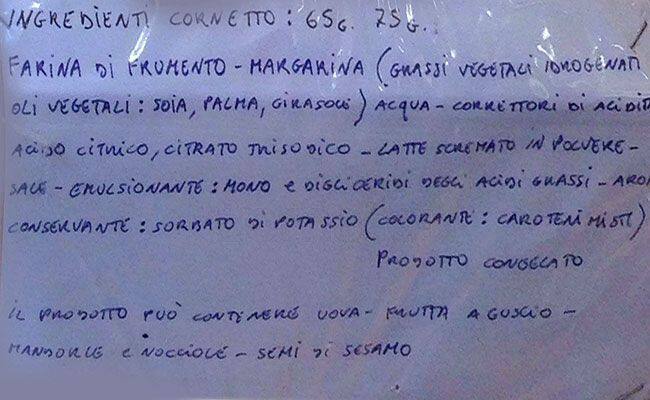 INGREDIENTI CORNETTO: 65g. 75g.
FARINA DI FRUMENTO - MARGARINA (GRASSI VEGETALI IDROGENATI
OLI VEGETALI: SOIA, PALMA, GIRASOLE) ACQUA - CORRETTORI DI ACIDIT
ACIDO CITRICO, CITRATO TRISODICO - LATTE SCREMATO IN POLVERE -
SALE - EMULSIONANTE: MONO e DIGLICERIDI DEGLI ACIDI GRASSI - ARO
CONSERVANTE: SORBATO DI POTASSIO (COLORANTE: CAROTENI MISTI)
PRODOTTO CONGELATO
IL PRODOTTO PUÒ CONTENERE UOVA - FRUTTA A GUSCIO -
MANDORLE e NOCCIOLE - SEMI DI SESAMO